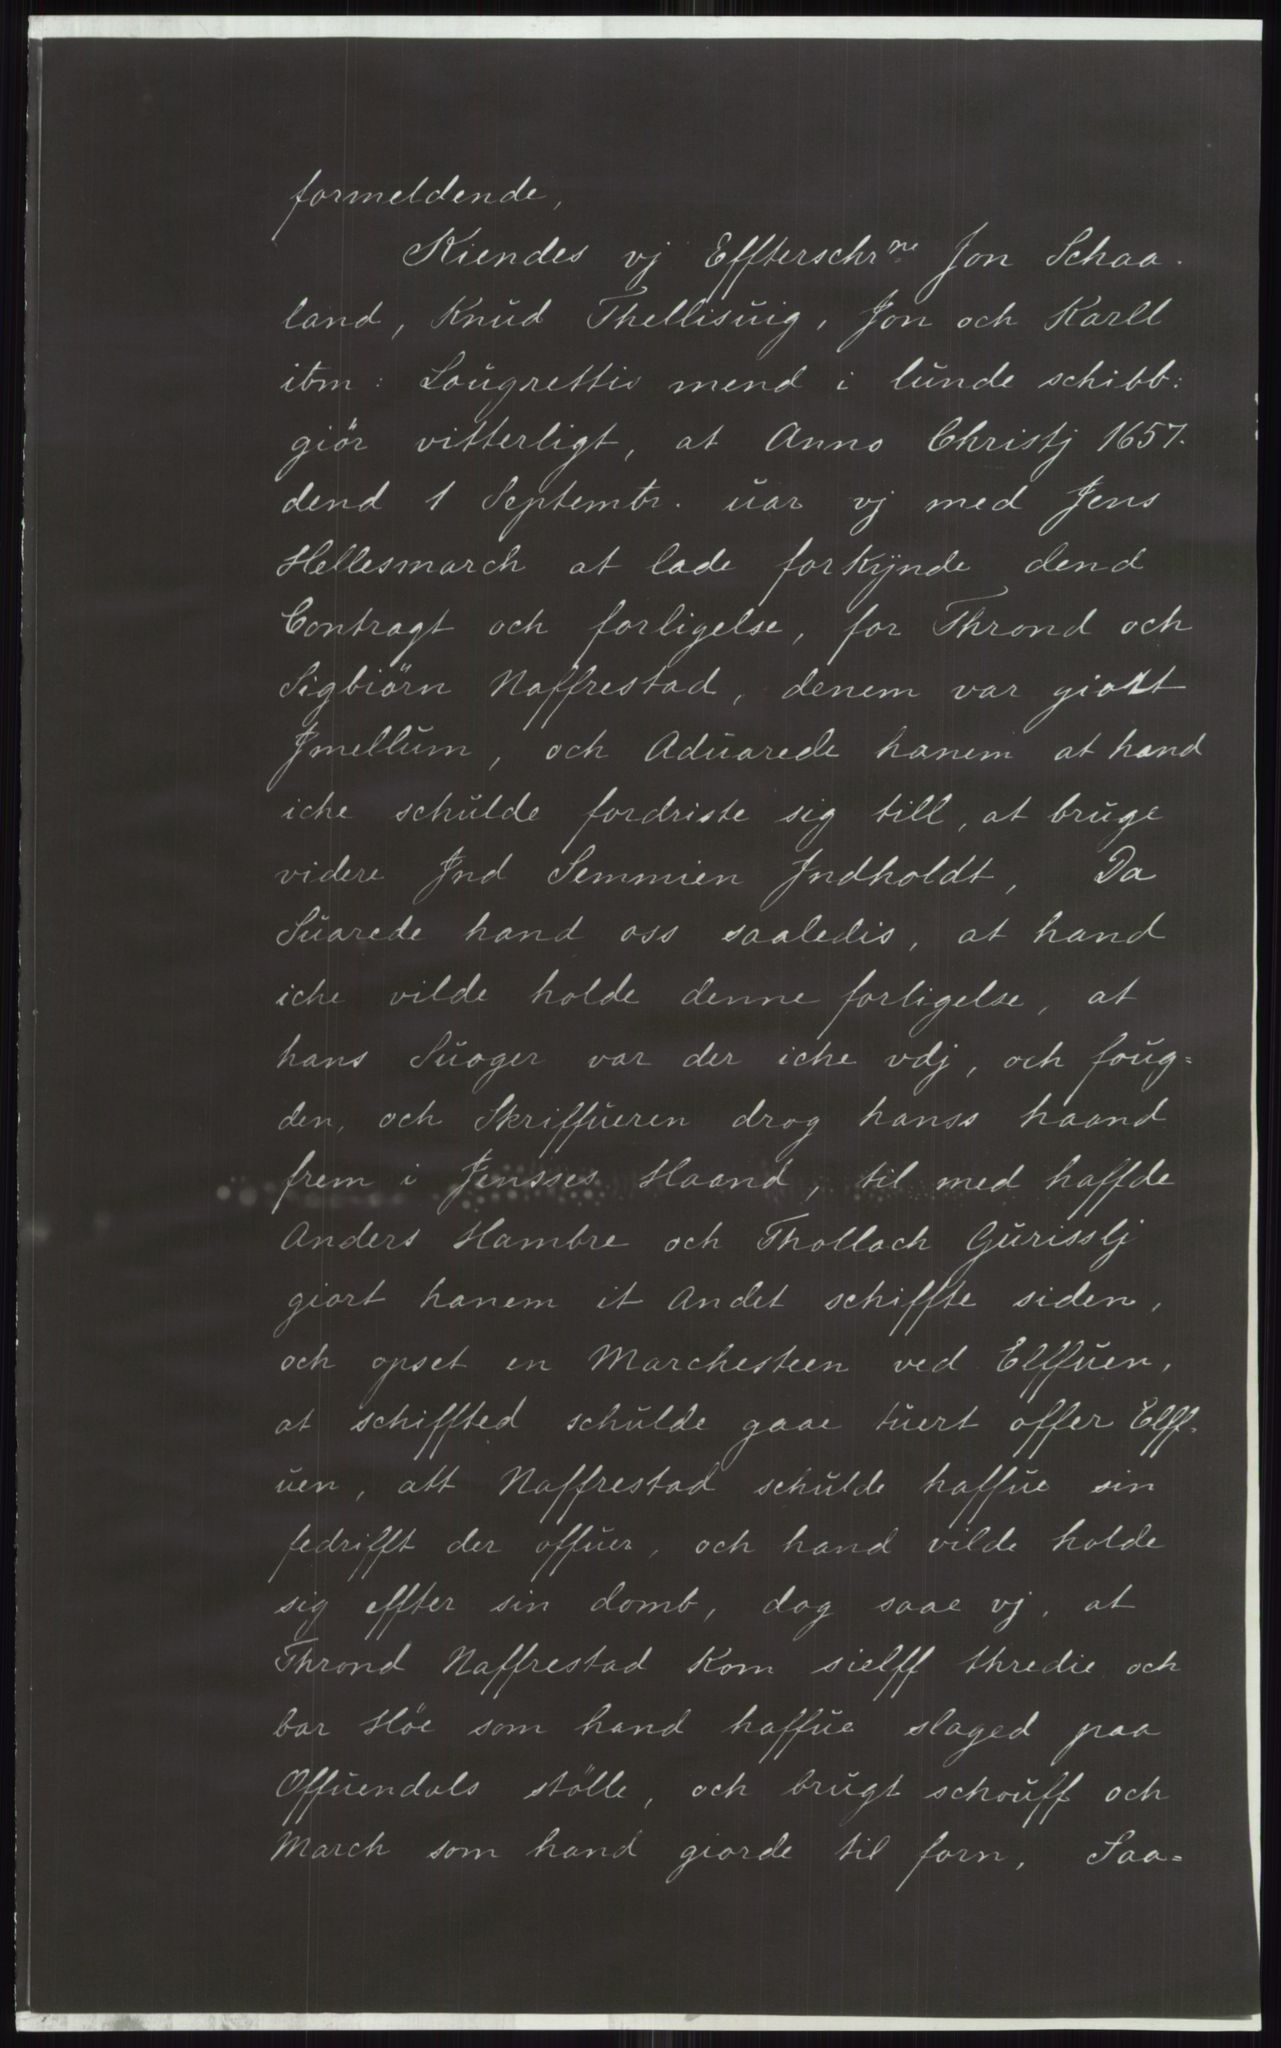 formeldende,
Kiendes vj Effterschrne Jon Schaa-
land, Knŭd Thellisŭig, Jon och Karll
ibm: Laŭgrettis mend i lŭnde schibb:
giör vitterligt, at Anno Christj 1657.
dend 1 Septembr. ŭar vj med Jens
Hellesmarch at lade forkÿnde dend
Contragt och forligelse, for Thrond och
Sigbiörn Naffrestad, denem var giort
Jmellŭm, och Adŭarede hanem at hand
iche schŭlde fordriste sig till, at brŭge
videre Jnd Semmien Jndholdt, Da
Sŭarede hand oss saaledis, at hand
iche vilde holde denne forligelse, at
hans Sŭoger var der iche vdj, och foŭg=
den, och Skriffŭeren drog hanss haand
frem i Jensses Haand, til med haffde
Anders Hambre och Thollach Gŭrisslj
giort hanem it Andet schiffte siden,
och opset en Marchesteen ved Elffŭen,
at schiffted schŭlde gaae tŭert offer Elff-
ŭen, att Naffrestad schŭlde haffŭe sin
fedrifft der offŭer, och hand vilde holde
sig effter sin domb, dog saae vj, at
Thrond Naffrestad Kom sielff thredie och
bar Höe som hand haffŭe slaged paa
Offŭendals stölle, och brŭgt schoŭff och
March som hand giorde til forn, Saa=